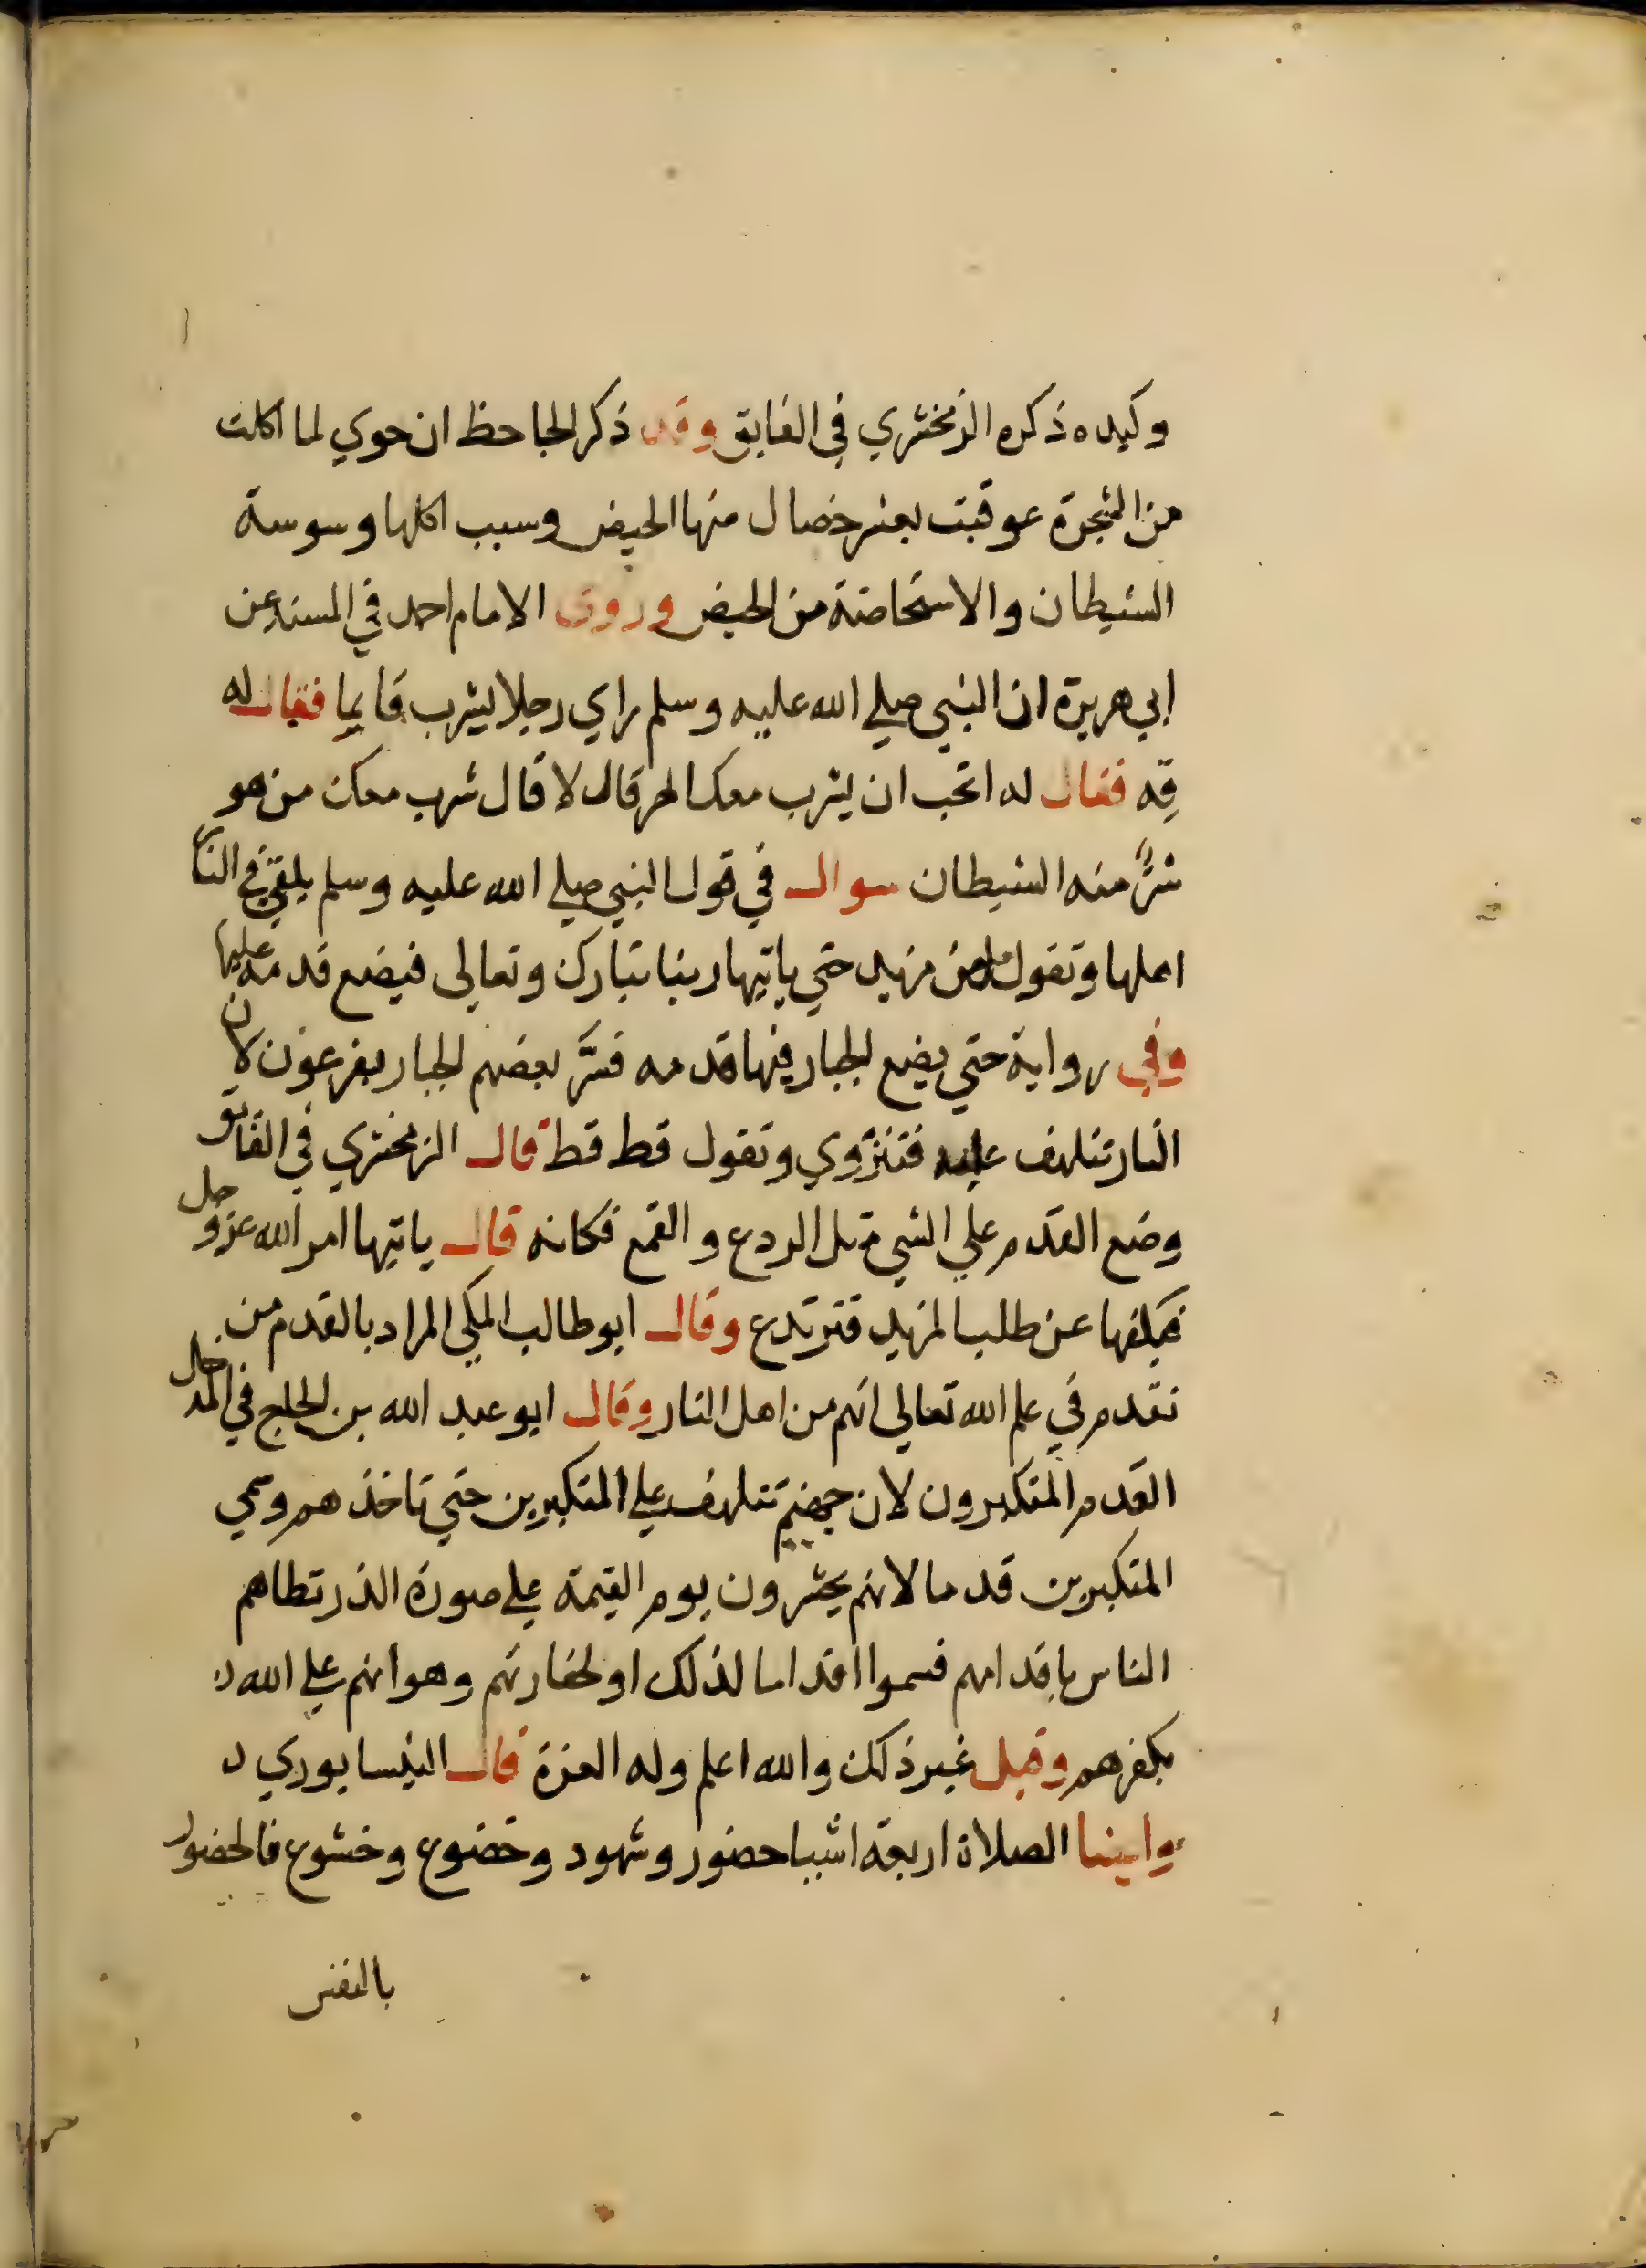 وكيده ذكره الزمخشري في الفايق وقد ذكر الجاحظ ان حوي لما اكلت
من الشجرة عوقبت بعشر خصال منها الحيض وسبب اكلها وسوسة
الشيطان والاستحاضة من الحيض وروى الامام احمد في المسند عن
ابي هريرة ان النبي صلي الله عليه وسلم راي رجلا يشرب قايما فقال له
قه فقال له اتحب ان يشرب معك الهر قال لا قال شرب معك من هو
شرٌّ منه الشيطان سوال في قول النبي صلي الله عليه وسلم يلقي في النار
اهلها وتقول هل من مزيد حتي ياتيها ربنا تبارك وتعالى فيضع قدمه عليها
وفي رواية حتي يضع الجبار فيها قدمه فسَّر بعضهم الجبار بفرعون لان
النار تتلهف عليه فتنزوي وتقول قط قط قال الزمخشري في الفايق
وضع القدم علي الشي مثل الردع والقمع فكانه قال ياتيها امر الله عز وجل
فيكفها عن طلب المزيد فترتدع وقال ابو طالب المكي المراد بالقدم من
تقدم في علم الله تعالي انهم من اهل النار وقال ابو عبد الله بن الحاج في المدخل
القدم المتكبرون لان جهنم تتلهف علي المتكبرين حتي تاخذهم وسمي
المتكبرين قدما لانهم يحشرون يوم القيمة علي صورة الذر تطاهم
الناس باقدامهم فسموا اقداما لذلك او لحقارتهم وهوانهم علي الله
بكفرهم وقيل غير ذلك والله اعلم وله العزة قال النيسابوري
وايضا الصلاة اربعة اشيا حضور وشهود وخضوع وخشوع فالحضور
بالنفس